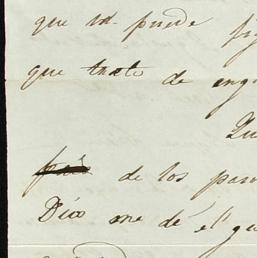 que ud. puede
que trato de eng
de los par
Dios me dé el